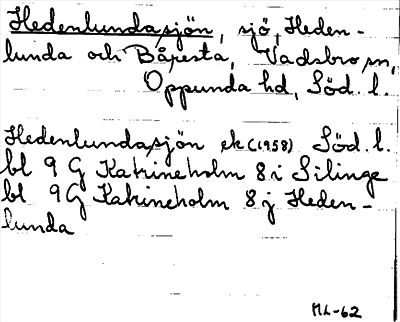 Hedenlundasjön, sjö, Heden-
lunda och Båpesta, Vadsbro sn,
Oppunda hd, Söd. l.
Hedenlundasjön ek (1958) Söd. l.
bl 9 G Katrineholm 8 i Silinge
bl 9 G Katrineholm 8 j Heden-
lunda
ML-62